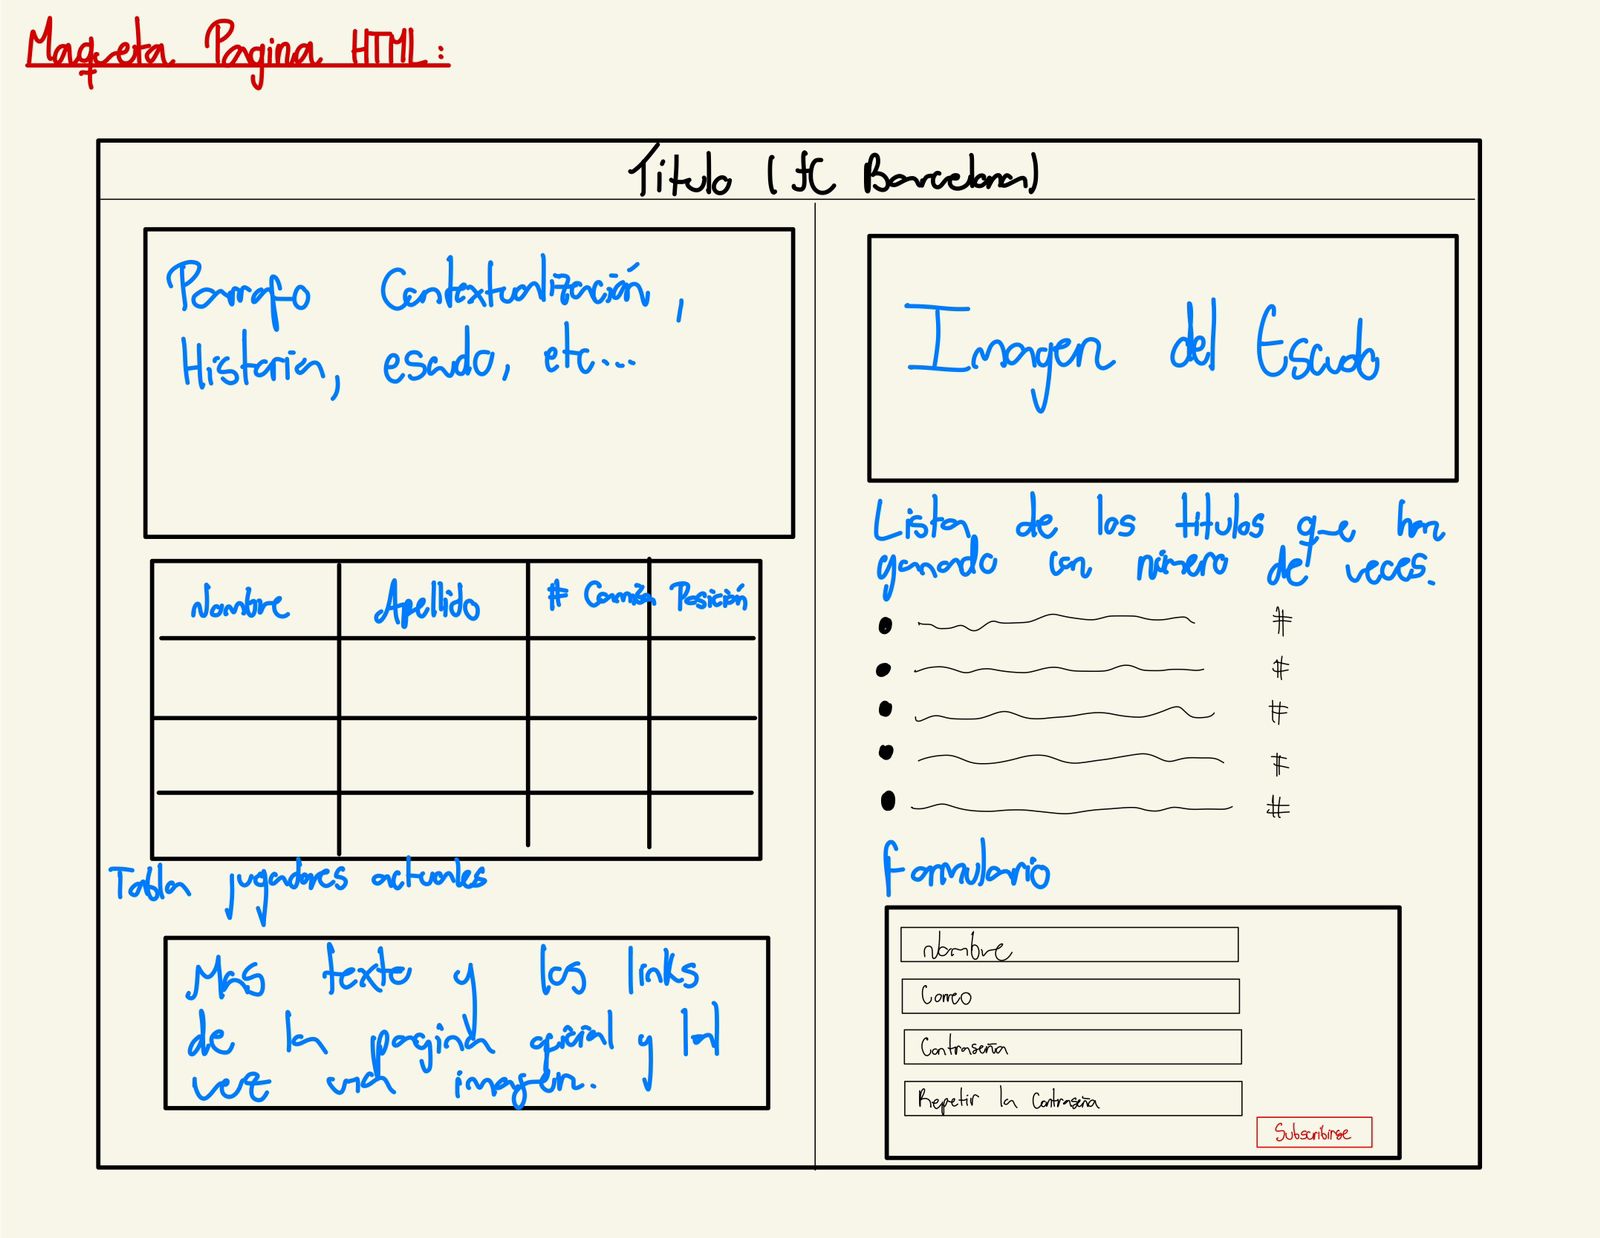 Maqueta Pagina HTML:
Titulo (FC Barcelona)
Parrafo Contextualización,
Historia, escudo, etc...
Nombre Apellido # Camisa Posición
Tabla jugadores actuales
Mas texto y los links
de la pagina oficial y tal
vez una imagen.
Imagen del Escudo
Lista de los titulos que han
ganado con número de veces.
#
#
#
#
#
Formulario
Nombre
Correo
Contraseña
Repetir la contraseña
Subscribirse